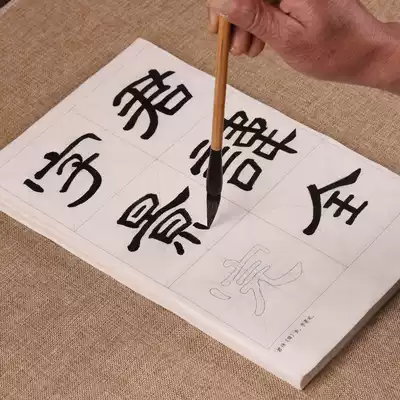 君諱全
字景完